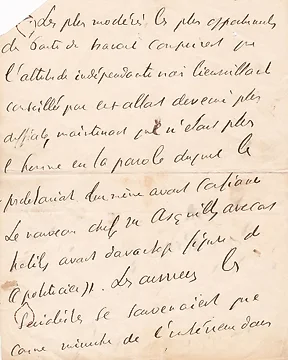 Les plus modérés les plus opportunistes
du parti de travail comprirent que
l'attitude indépendante mais bienveillante
conseillée par
difficile, maintenant que n'était plus
l'homme en la parole duquel le
prolétariat lui-même avait confiance
Le nouveau chef Mr Asquith, avocat
habile, avait davantage figure de
"politicien". Les ouvriers les
se souvenaient que
comme ministre de l'intérieur dans